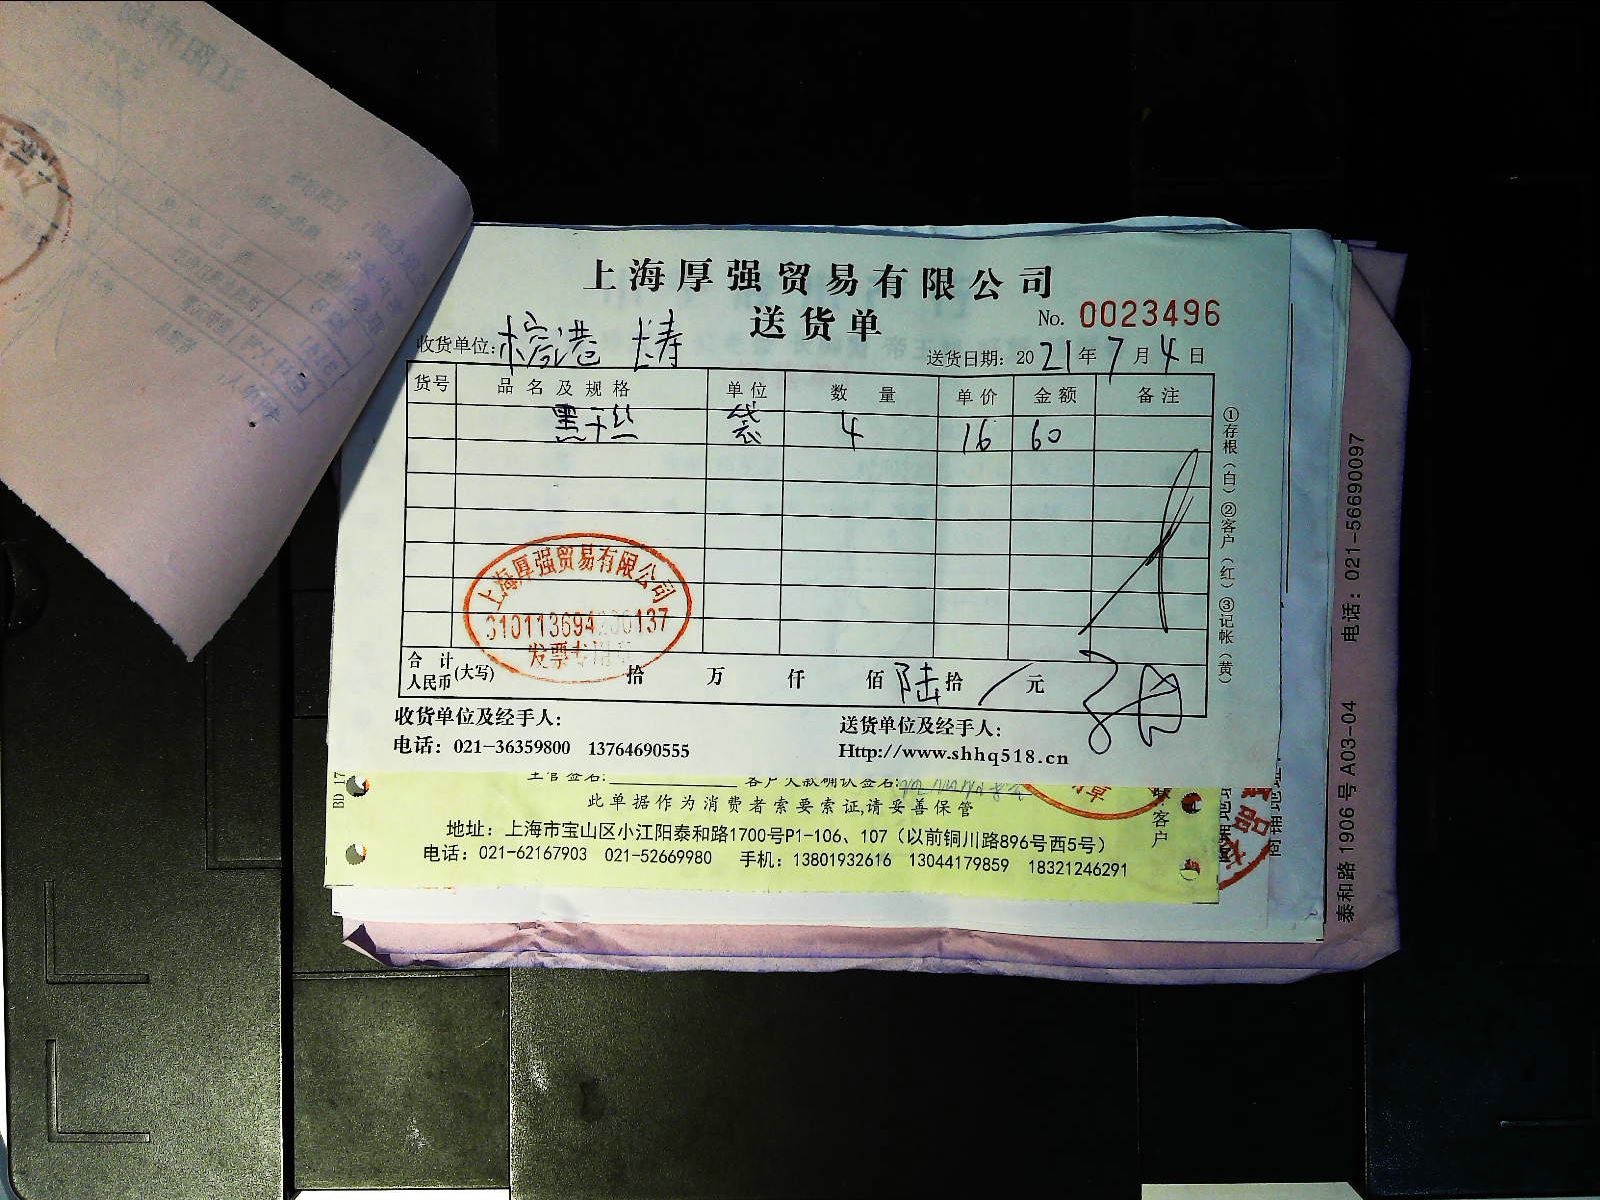 上海厚强贸易有限公司
送货单
No. 0023496
收货单位: 港 长寿
送货日期: 2021年7月4日
货号 品名及规格 单位 数量 单价 金额 备注
黑干丝 袋 4 16 60
上海厚强贸易有限公司
发票专用章
合计人民币(大写) 拾 万 仟 佰 陆拾 / 元
收货单位及经手人:
送货单位及经手人:
电话: 021-36359800 13764690555
Http://www.shhq518.cn
①存根(白)②客户(红)③记帐(黄)
BD 17
主管签名: 客户欠款确认签名:
此单据作为消费者索要索证,请妥善保管
地址: 上海市宝山区小江阳泰和路1700号P1-106、107 (以前铜川路896号西5号)
电话: 021-62167903 021-52669980 手机: 13801932616 13044179859 18321246291
客户
泰和路1906号A03-04 电话: 021-56690097